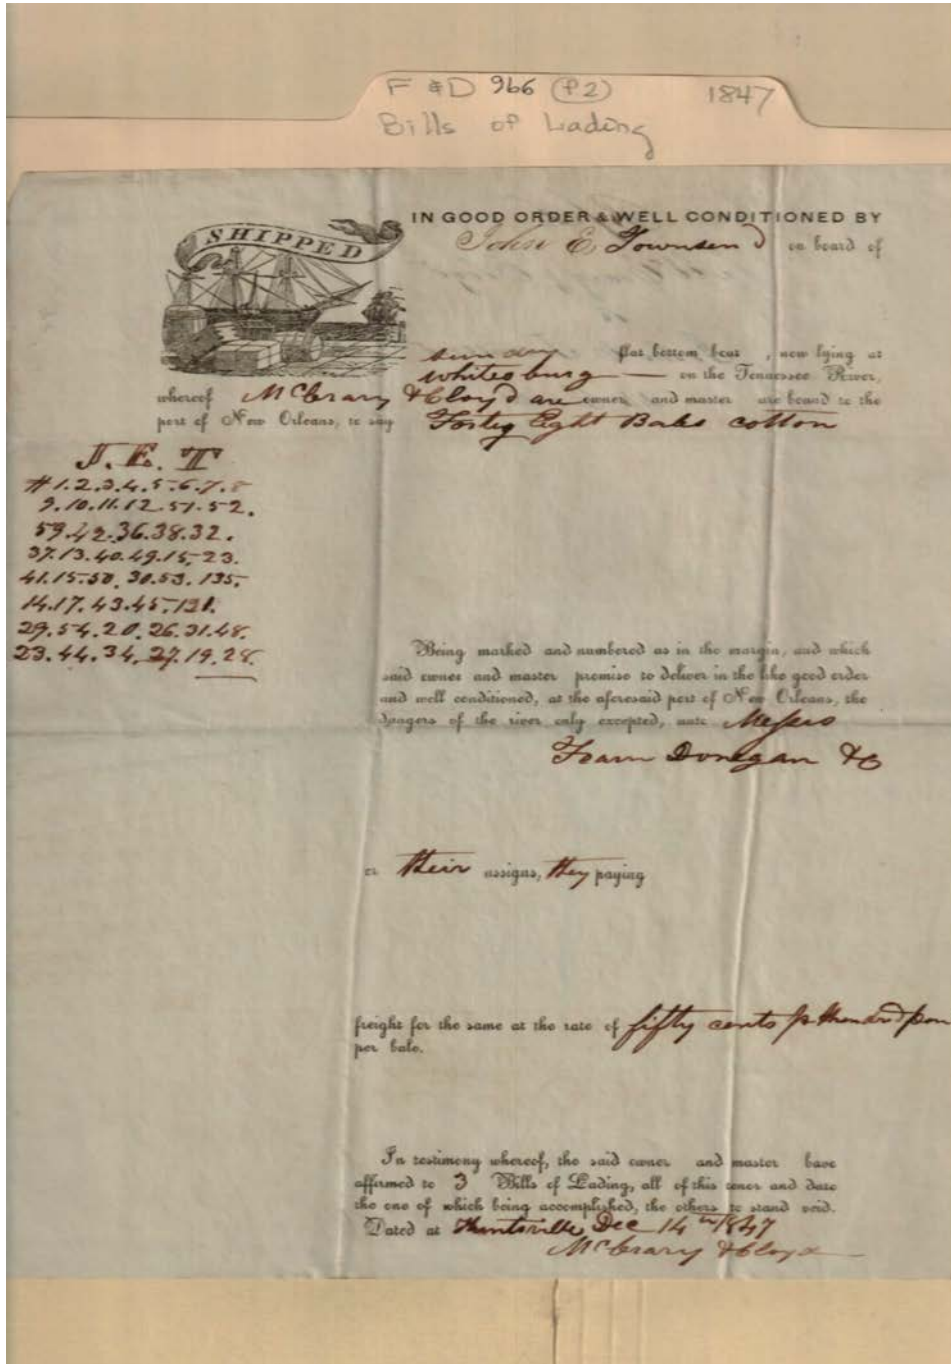 F & D 966 (f2) 1847
Bills of Lading
SHIPPED
IN GOOD ORDER & WELL CONDITIONED BY
John E, Townsend on board of
flat bottom boat, now lying at
whitesburg — on the Tennessee River,
whereof McCrary & Cloyd are owner and master are bound to the
port of New Orleans, to say Forty Eight Bales cotton
J. E. T
#1.2.3.4.5.6.7.8
9.10.11.12.51.52.
59.42.36.38.32.
37.13.40.49.15.23.
41.15.50.30.53.135.
14.17.43.45.121.
29.54.20.26.31.48.
23.44.34.27.19.28.
Being marked and numbered as in the margin, and which
said owner and master promise to deliver in the like good order
and well conditioned, at the aforesaid port of New Orleans, the
dangers of the river only excepted, unto Messrs
Fearn Donegan & Co
or their assigns, they paying
freight for the same at the rate of fifty cents p Hundred poun
per bale.
In testimony whereof, the said owner and master have
affirmed to 3 Bills of Lading, all of this tenor and date
the one of which being accomplished, the others to stand void.
Dated at Huntsville Dec 14th 1847
McCrary & Cloyd